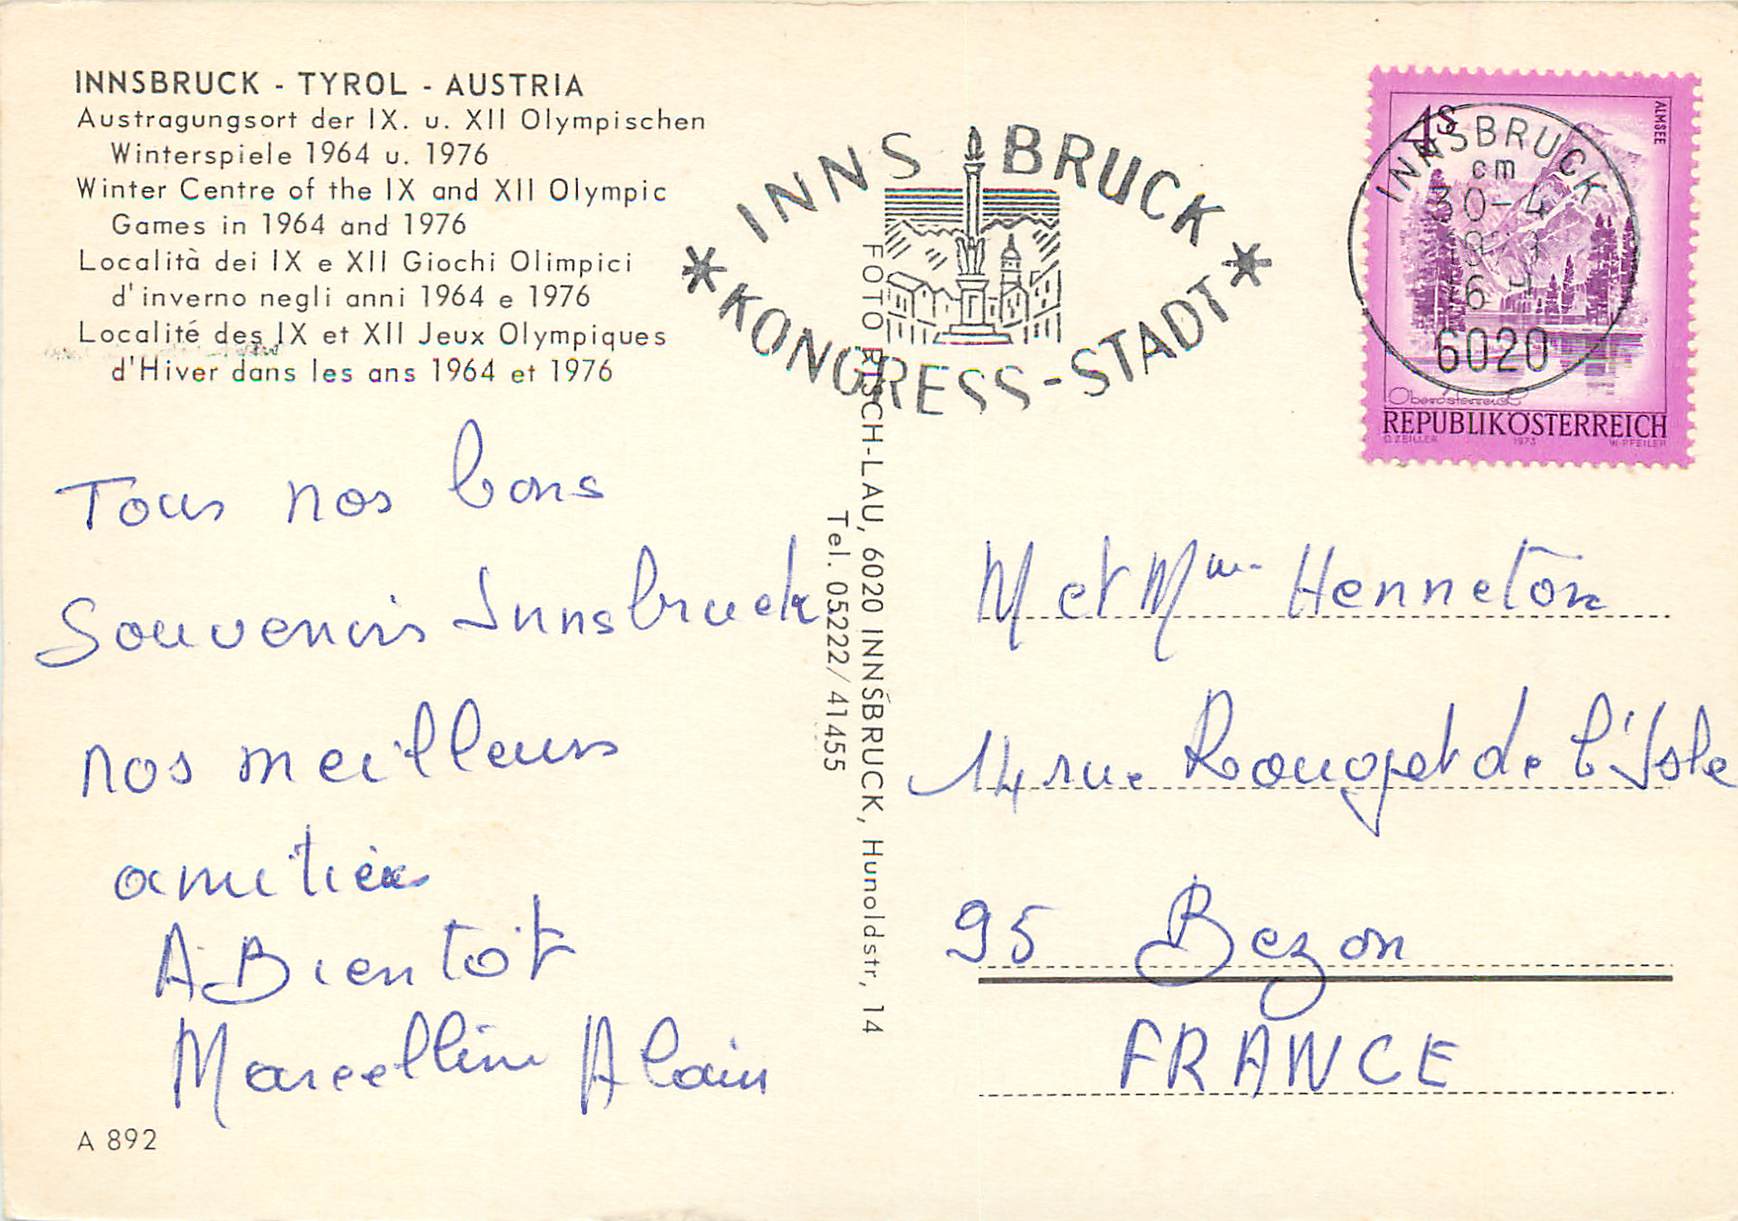 INNSBRUCK - TYROL - AUSTRIA
Austragungsort der IX. u. XII Olympischen
Winterspiele 1964 u. 1976
Winter Centre of the IX and XII Olympic
Games in 1964 and 1976
Località dei IX e XII Giochi Olimpici
d'inverno negli anni 1964 e 1976
Localité des IX et XII Jeux Olympiques
d'Hiver dans les ans 1964 et 1976
INNSBRUCK
* KONGRESS-STADT *
4S
ALMSEE
INNSBRUCK
cm
30-4
6020
Oberösterreich
REPUBLIK ÖSTERREICH
O. ZEILLER 1973 W. PFEILER
FOTO RISCH-LAU, 6020 INNSBRUCK, Hunoldstr, 14
Tel. 05222/41455
Tous nos bons
souvenirs Innsbruck
nos meilleurs
amitiés
A Bientôt
Marcelline Alain
M et Mme Henneton
14 rue Rouget de l'Isle
95 Bezon
FRANCE
A 892